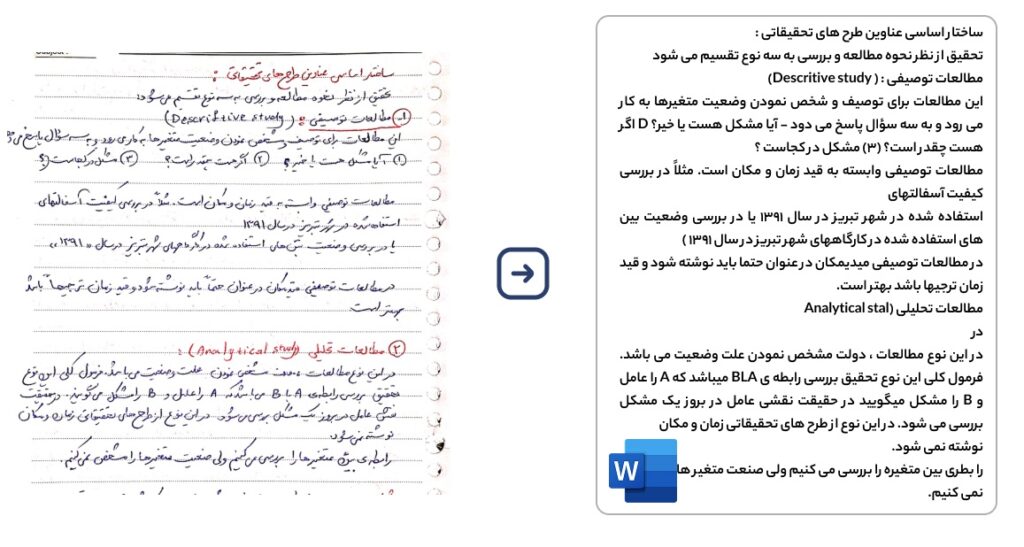 ساختار اساسی عناوین طرح های تحقیقاتی :
تحقیق از نظر نحوه مطالعه و بررسی به سه نوع تقسیم می شود:
۱. مطالعات توصیفی : (Descriftive study)
این مطالعات برای توصیف و مشخص نمودن وضعیت متغیرها به کار می رود و به سه سؤال پاسخ می دهد
۱) آیا مشکل هست یا خیر؟ ۲) اگر هست چقدر است؟ ۳) مشکل در کجاست؟
مطالعات توصیفی وابسته به قید زمان و مکان است. مثلاً در بررسی کیفیت آسفالتهای
استفاده شده در شهر تبریز در سال ۱۳۹۱
یا در بررسی وضعیت بتن های استفاده شده در کارگاههای شهر تبریز در سال « ۱۳۹۱ »
در مطالعات توصیفی قید مکان در عنوان حتماً باید نوشته شود و قید زمان ترجیحاً باشد
بهتر است.
۲ مطالعات تحلیلی (Analytical study) :
در این نوع مطالعات مشخص نمودن علت وضعیت می باشد. فرمول کلی این نوع
تحقیق بررسی رابطه ی A با B می باشد که A را عامل و B را مشکل می گویند. در حقیقت
نقش عامل در بروز یک مشکل بررسی می شود. در این نوع از طرح های تحقیقاتی زمان و مکان
نوشته نمی شود.
رابطه ی بین متغیرها را بررسی می کنیم ولی وضعیت متغیرها را مشخص نمی کنیم.
ساختار اساسی عناوین طرح های تحقیقاتی :
تحقیق از نظر نحوه مطالعه و بررسی به سه نوع تقسیم می شود
مطالعات توصیفی : ( Descritive study)
این مطالعات برای توصیف و شخص نمودن وضعیت متغیرها به کار
می رود و به سه سؤال پاسخ می دود - آیا مشکل هست یا خیر؟ D اگر
هست چقدر است؟ (۳) مشکل در کجاست ؟
مطالعات توصیفی وابسته به قید زمان و مکان است. مثلاً در بررسی
کیفیت آسفالتهای
استفاده شده در شهر تبریز در سال ۱۳۹۱ یا در بررسی وضعیت بین
های استفاده شده در کارگاههای شهر تبریز در سال ۱۳۹۱ )
در مطالعات توصیفی میدیمکان در عنوان حتما باید نوشته شود و قید
زمان ترجیها باشد بهتر است.
مطالعات تحلیلی (Analytical stal
در
در این نوع مطالعات ، دولت مشخص نمودن علت وضعیت می باشد.
فرمول کلی این نوع تحقیق بررسی رابطه ی BLA میباشد که A را عامل
و B را مشکل میگویید در حقیقت نقشی عامل در بروز یک مشکل
بررسی می شود. در این نوع از طرح های تحقیقاتی زمان و مکان
نوشته نمی شود.
را بطری بین متغیره را بررسی می کنیم ولی صنعت متغیر ها
نمی کنیم.
W